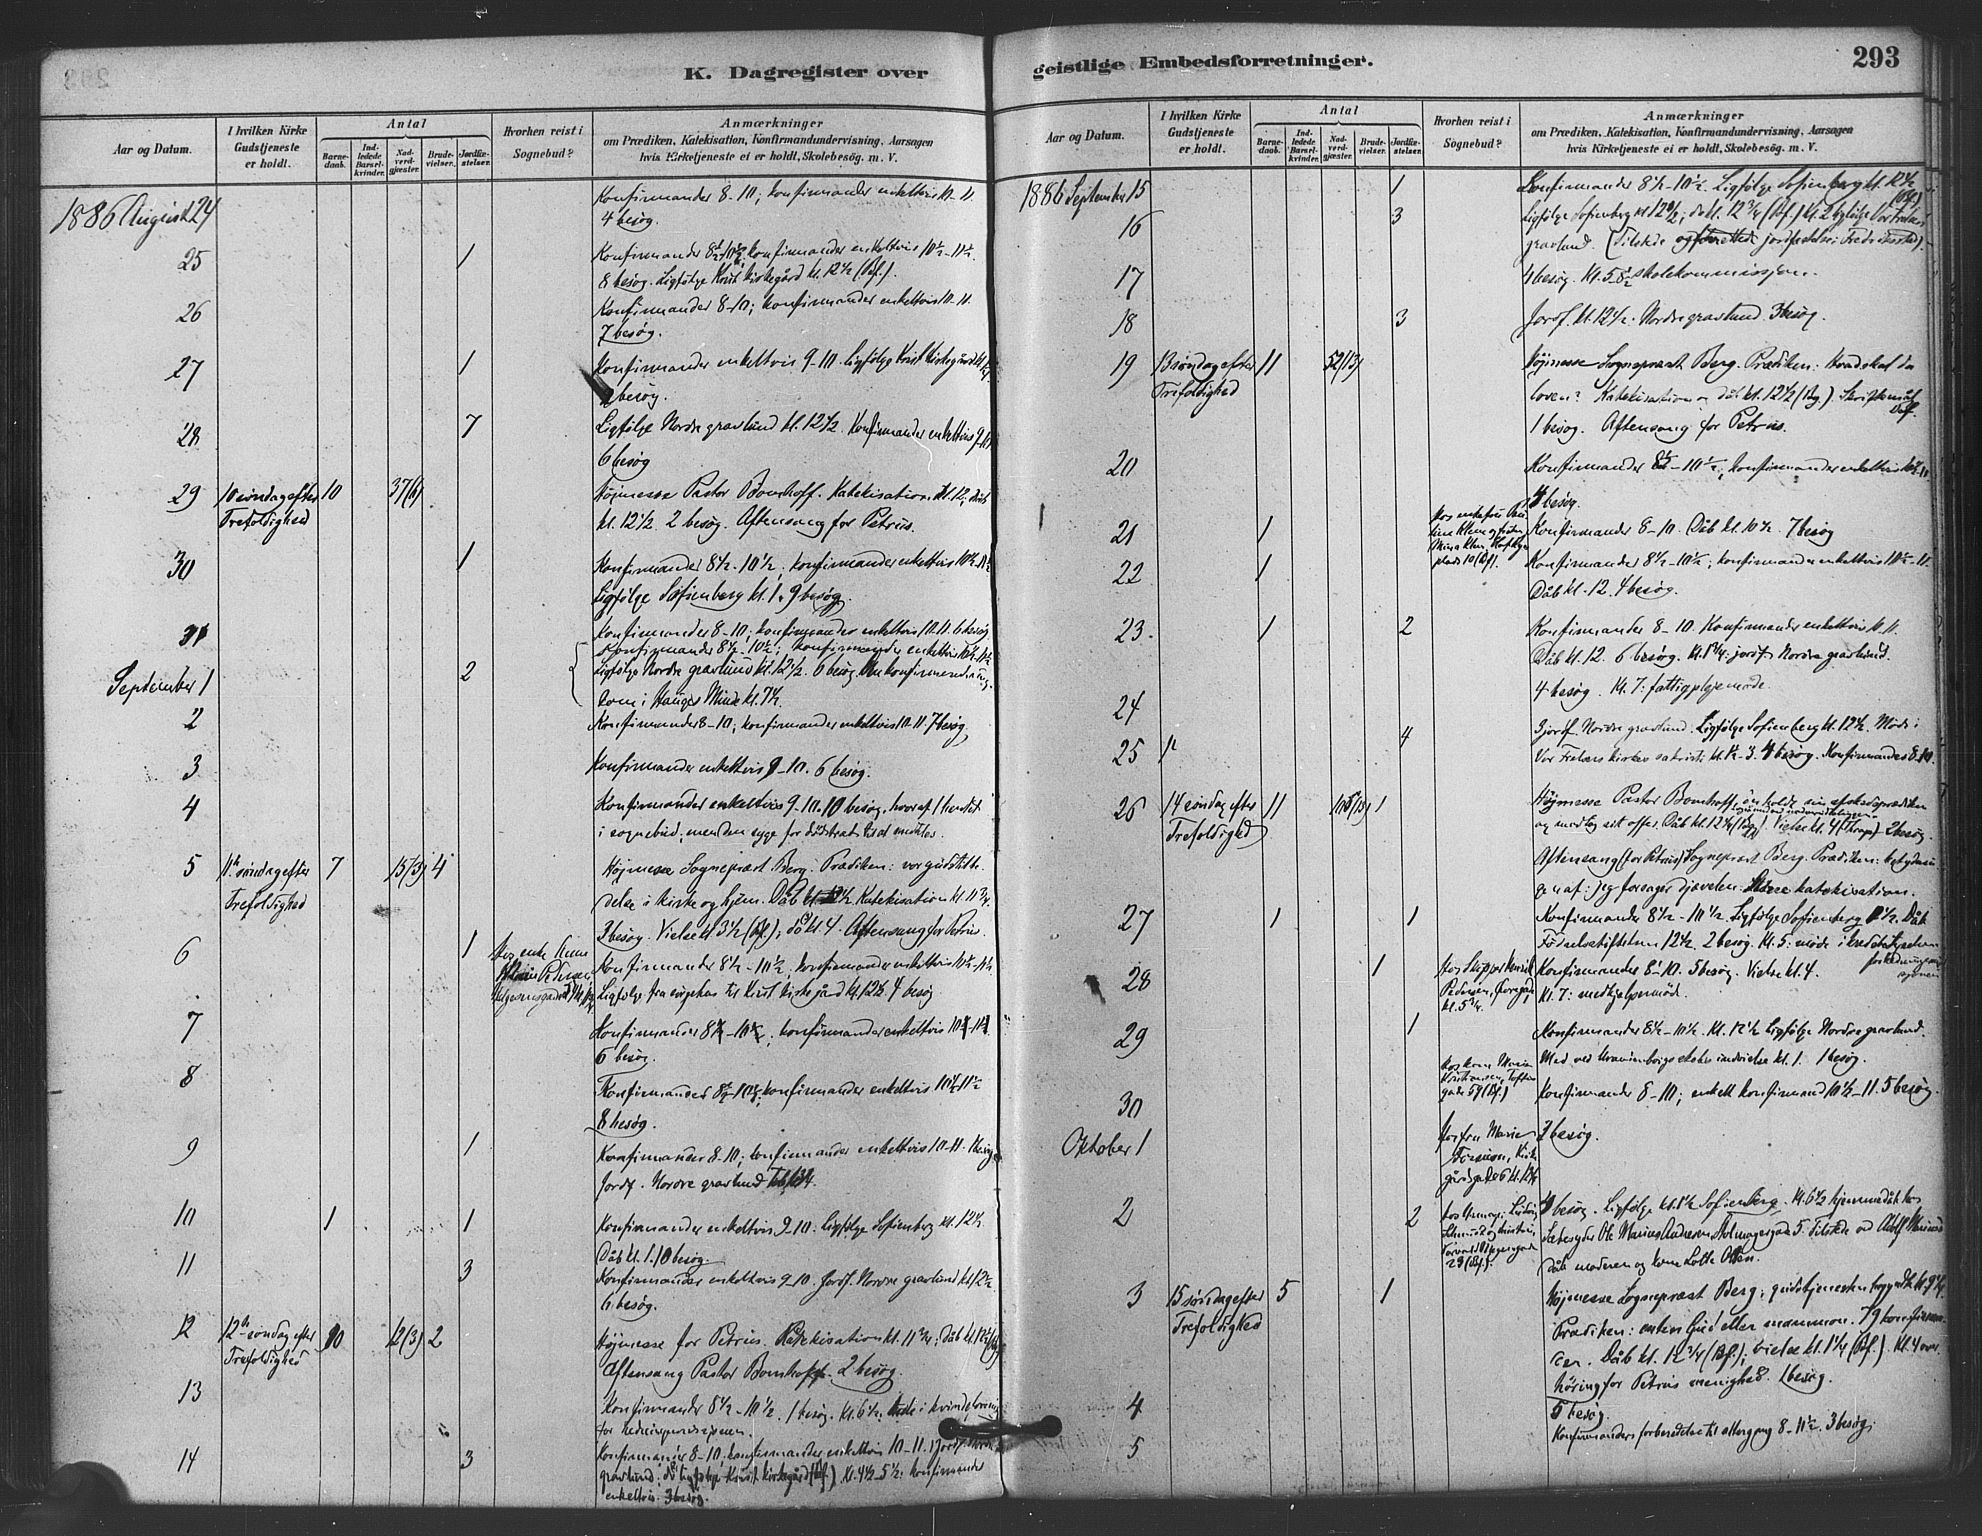 K. Dagregister over
Aar og Datum.
I hvilken Kirke
Gudstjeneste
er holdt.
Antal
Barne-
daab.
Ind-
ledede
Barsel-
kvinder.
Nad-
verd-
gjæster.
Brude-
vielser.
Jordfæ-
stelser.
Hvorhen reist i
Sognebud?
Anmærkninger
om Prædiken, Katekisation, Konfirmandundervisning, Aarsagen
hvis Kirketjeneste ei er holdt, Skolebesøg. m. V.
1886 August 24
Konfirmander 8-10; konfirmander enkeltvis 10-11.
4 besøg.
25 1
Konfirmander 8½-10½; konfirmander enkeltvis 10½-11½.
8 besøg. Ligfølge Krist kirkegård kl. 12½ (Bf.).
26
Konfirmander 8-10; konfirmander enkeltvis 10-11.
7 besøg.
27 1
Konfirmander enkeltvis 9-10. Ligfølge Krist kirkegård kl. 12½
2 besøg.
28 7
Ligfølge Nordre gravlund kl. 12½. Konfirmander enkeltvis 9-10
6 besøg
29 10 søndag efter 10 37(6)
Trefoldighed
Højmesse Pastor Bomhoff. Katekisation kl. 12, dåb
kl. 12½ 2 besøg. Aftensang for Petrus.
30 1
Konfirmander 8½-10½; konfirmander enkeltvis 10½-11½
Ligfølge Sofienberg kl. 1. 9 besøg
31
Konfirmander 8-10; konfirmander enkeltvis 10-11. 6 besøg
September 1 2
Konfirmander 8½-10½; konfirmander enkeltvis 10½-11½
Ligfølge Nordre gravlund kl. 12½. 6 besøg. Den konfirmerede ung-
dom i Hauges Minde kl. 7½.
2
Konfirmander 8-10; konfirmander enkeltvis 10-11. 7 besøg.
3
Konfirmander enkeltvis 9-10. 6 besøg.
4
Konfirmander enkeltvis 9-10. 10 besøg, hvoraf 1 hendet
i sognebud; men den syge for
5 11te søndag efter 7 15(3) 4
Trefoldighed
Højmesse Sognepræst Berg. Prædiken: vor gudstilbe-
delse i kirke og hjem. Dåb kl. 12½ Katekisation kl. 11¾.
3 besøg. Vielse kl. 3½ (Bf.); do kl. 4. Aftensang for Petrus.
6 1
Hos enke Anne
Konfirmander 8½-10½; konfirmander enkeltvis 10½-11½
Ligfølge fra sygehus til Krist kirkegård kl. 12½ 4 besøg
7
Konfirmander 8½-10½; konfirmander enkeltvis 10½-11½.
6 besøg.
8
Konfirmander 8½-10½; konfirmander enkeltvis 10½-11½
8 besøg.
9 1
Konfirmander 8-10; konfirmander enkeltvis 10-11. 1 besøg
Jordf. Nordre gravlund
10 1 1
Konfirmander enkeltvis 9-10. Ligfølge Sofienberg kl. 12½.
Dåb kl. 1. 10 besøg.
11 3
Konfirmander enkeltvis 9-10. Jordf. Nordre gravlund kl. 12½
6 besøg.
12 12te søndag efter 10 12(3) 2
Trefoldighed
Højmesse for Petrus. Katekisation kl. 11¾; Dåb kl. 12½
Aftensang Pastor Bomhoff. 2 besøg.
13
Konfirmander 8½-10½. 1 besøg. kl. 6½ møde i kvindeforening
for hedningemissionen.
14 3
Konfirmander 8-10; konfirmander enkeltvis 10-11. Jordf. Nordre
gravlund; do Ligfølge Krist kirkegård (Bf.) Kl. 4½-5½: konfirmander
enkeltvis. 3 besøg.
geistlige Embedsforretninger.
293
Aar og Datum.
I hvilken Kirke
Gudstjeneste
er holdt.
Antal
Barne-
daab.
Ind-
ledede
Barsel-
kvinder.
Nad-
verd-
gjæster.
Brude-
vielser.
Jordfæ-
stelser.
Hvorhen reist i
Sognebud?
Anmærkninger
om Prædiken, Katekisation, Konfirmandundervisning, Aarsagen
hvis Kirketjeneste ei er holdt, Skolebesøg. m. V.
1886 September 15 1
Konfirmander 8½-10½. Ligfølge Sofienberg kl. 12½
(Bf.)
16 3
Ligfølge Sofienberg kl. 12½; do kl. 12¾ (Bf.) Kl. 2 ligfølge Vor Frelsers
gravlund. (Tilstede og forrettede jordfæstelse: Fredrikstad).
17
4 besøg. Kl. 5-8½ skolekommission.
18 3
Jordf. kl. 12½. Nordre gravlund. 3 besøg.
19 13 søndag efter 11 52(13)
Trefoldighed
Højmesse Sognepræst Berg. Prædiken: Hvad skal da
loven? Katekisation og dåb kl. 12½ (Bg.) Skriftemål
Bf.
1 besøg. Aftensang for Petrus.
20
Konfirmander 8½-10½; konfirmander enkeltvis 10½-11.
4 besøg.
21 1
Konfirmander 8-10. Dåb kl. 10½. 7 besøg
22 1
Konfirmander 8½-10½; konfirmander enkeltvis 10½-11.
Dåb kl. 12. 4 besøg.
23. 1 2
Konfirmander 8-10. Konfirmander enkeltvis 10-11.
Dåb kl. 12. 6 besøg. Kl. 1¼: jordf. Nordre gravlund.
24
4 besøg. Kl. 7: fattigplejemøde.
25 4
3 jordf. Nordre gravlund. Ligfølge Sofienberg kl. 12½. Møde i
Vor Frelsers kirkes sakristi kl. 1½-3. 4 besøg. Konfirmander 8-10.
26 14 søndag efter 11 1
Trefoldighed
Højmesse Pastor Bomhoff, som holdt sin afskedsprædiken
og modtog sit offer. Dåb kl. 12½ Vielse kl. 4 2 besøg.
Aftensang (for Petrus) Sognepræst Berg. Prædiken: betydnin-
gen af: jeg forsager djævelen. Større katekisation.
27 1 1
Konfirmander 8½-10½. Ligfølge Sofienberg 1½. Dåb
Fødselsstiftelsen 12½. 2 besøg. Kl. 5: møde i kredsbestyrelsen
28 1
Hos Skipper Henrik
Pedersen,
kl. 5¾.
Konfirmander 8-10. 5 besøg. Vielse kl. 4.
Kl. 7: medhjelpermøde.
29 1
Konfirmander 8½-10½. Kl. 12½ Ligfølge Nordre gravlund.
Med ved skoles indvielse kl. 1. 1 besøg.
30
Hos kone Maren
Kristiansen, Tofte-
gade 59 (Bf.)
Konfirmander 8-10; enkelt konfirmand 10½-11. 5 besøg.
Oktober 1
Hos fru Marie
7 besøg.
2 2
4 besøg. Ligfølge kl. 1½ Sofienberg. Kl. 6½ hjemmedåb hos
Læbesyder Ole Marius Andersen, 5. Tilstede ved Adolf Marius
dåb moderen og kone Lotte Olsen.
3 15 søndag efter 5 1
Trefoldighed
Højmesse Sognepræst Berg; gudstjenesten begyndte kl. 9½.
Prædiken: enten Gud eller mammon. 79 konfirman-
der. Dåb kl. 12¾ (Bf.); vielse kl. 1¼ (Bf.) Kl. 4 over-
høring for Petrus menighed. 1 besøg.
4
5 besøg.
5
Konfirmanders forberedelse til altergang 8-11½ 3 besøg;